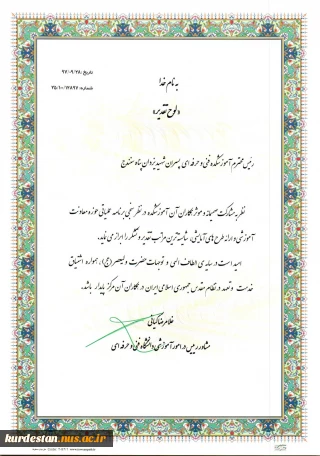 تاریخ: ۹۷/۰۹/۲۸
شماره: ۲۵/۱۰/۱۷۸۹۷
به نام خدا
«لوح تقدیر»
رئیس محترم آموزشکده فنی و حرفه ای پسران شهید یزدان پناه سنندج
نظر به مشارکت صمیمانه و موثر همکاران آن آموزشکده در نظر سنجی برنامه عملیاتی حوزه معاونت
آموزشی و ارائه طرح های آمایشی، شایسته ترین مراتب تقدیر و تشکر را ابراز می نماید.
امید است در سایه ی الطاف الهی و توجهات حضرت ولیعصر (عج)، همواره اشتیاق
خدمت و تعهد در نظام مقدس جمهوری اسلامی ایران در همکاران آن مرکز پایدار باشد.
غلامرضا کیانی
مشاور رییس در امور آموزشی دانشگاه فنی و حرفه ای
kurdestan.nus.ac.ir